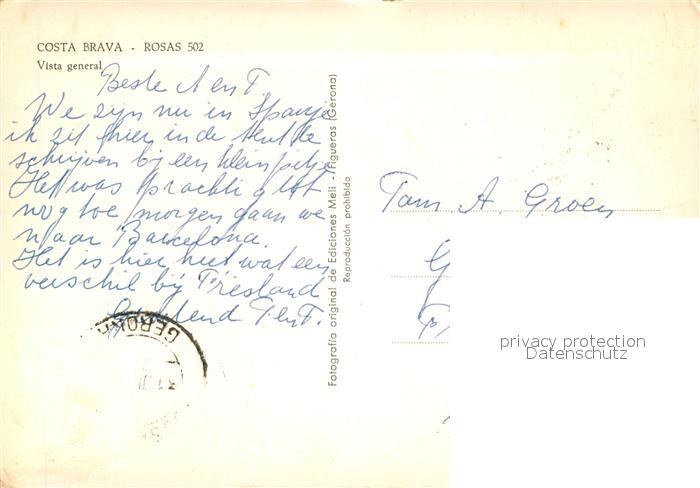 COSTA BRAVA - ROSAS 502
Vista general
Beste A en T.
We zijn nu in Spanje
ik zit hier in de tent te
schrijven bij een klein pitje
Het was prachtig tot
nog toe morgen gaan we
naar Barcelona.
Het is hier heel wat een
verschil bij Friesland
T en F.
Fotografía original de Ediciones Meli - Figueras (Gerona)
Reproducción prohibida
Fam A. Groen
G
F
privacy protection
Datenschutz
GERONA